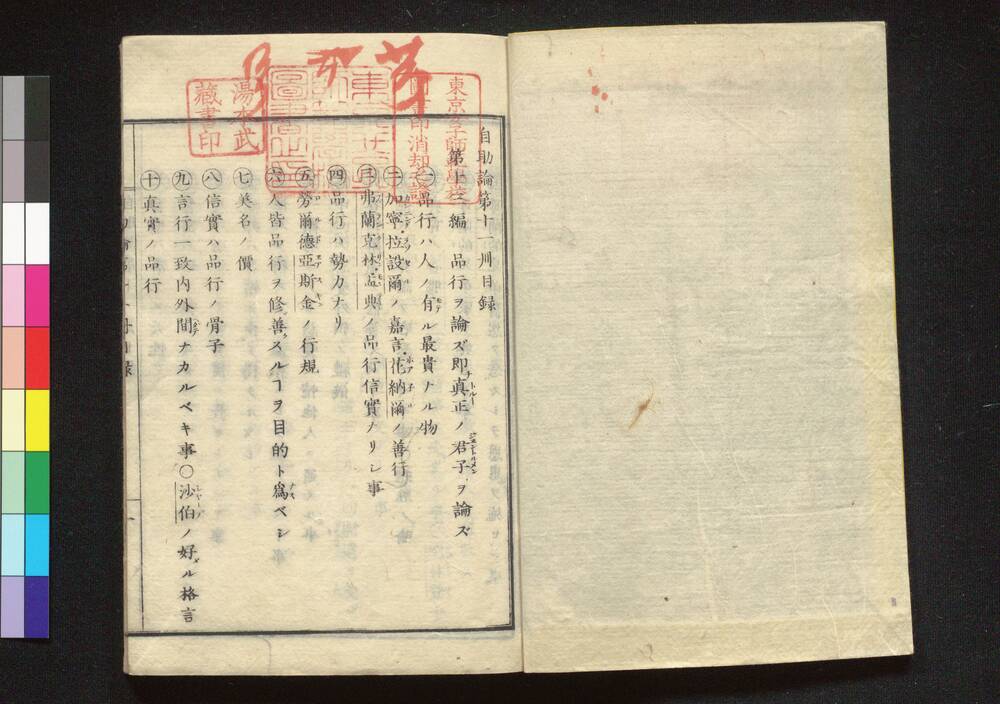 自助論第十一冊目録
第十三編 品行ヲ論ズ即真正ノ君子ヲ論ズ
㊀品行ハ人ノ有ル最貴ナル物
㊁加寧・拉設爾ノ嘉言・花納爾ノ善行
㊂弗蘭克林・孟典ノ品行信實ナリシ事
㊃品行ハ勢力ナリ
㊄勞爾德亞斯金ノ行規
㊅人皆品行ヲ修善スルヿヲ目的ト為ベシ
㊆美名ノ價
㊇信實ハ品行ノ骨子
㊈言行一致内外間ナカルベキ事〇沙伯ノ好メル格言
㊉真實ノ品行
湯本武
藏書印